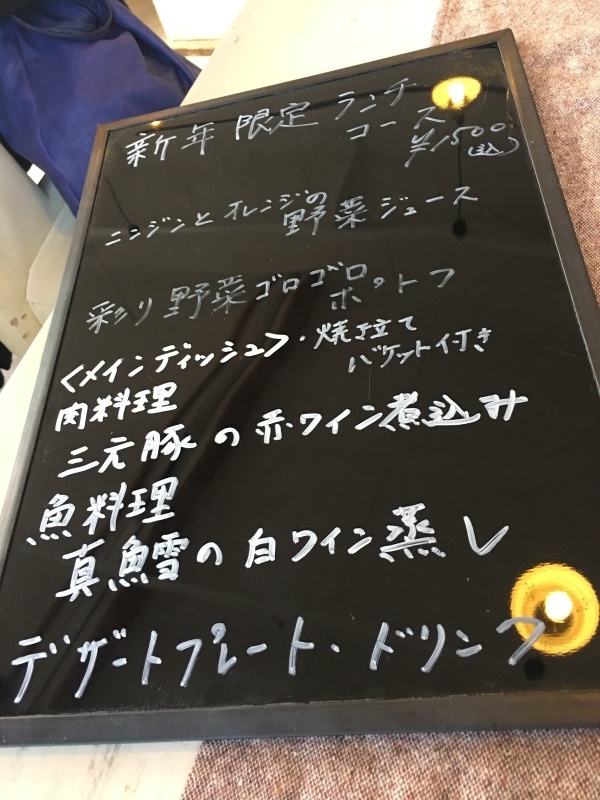 新年限定ランチ
コース
¥1500
(込)
ニンジンとオレンジの
野菜ジュース
彩り野菜ゴロゴロ
ポットフ
<メインディッシュ>・焼立て
バケット付き
肉料理
三元豚の赤ワイン煮込み
魚料理
真鱈の白ワイン蒸し
デザートプレート・ドリンク